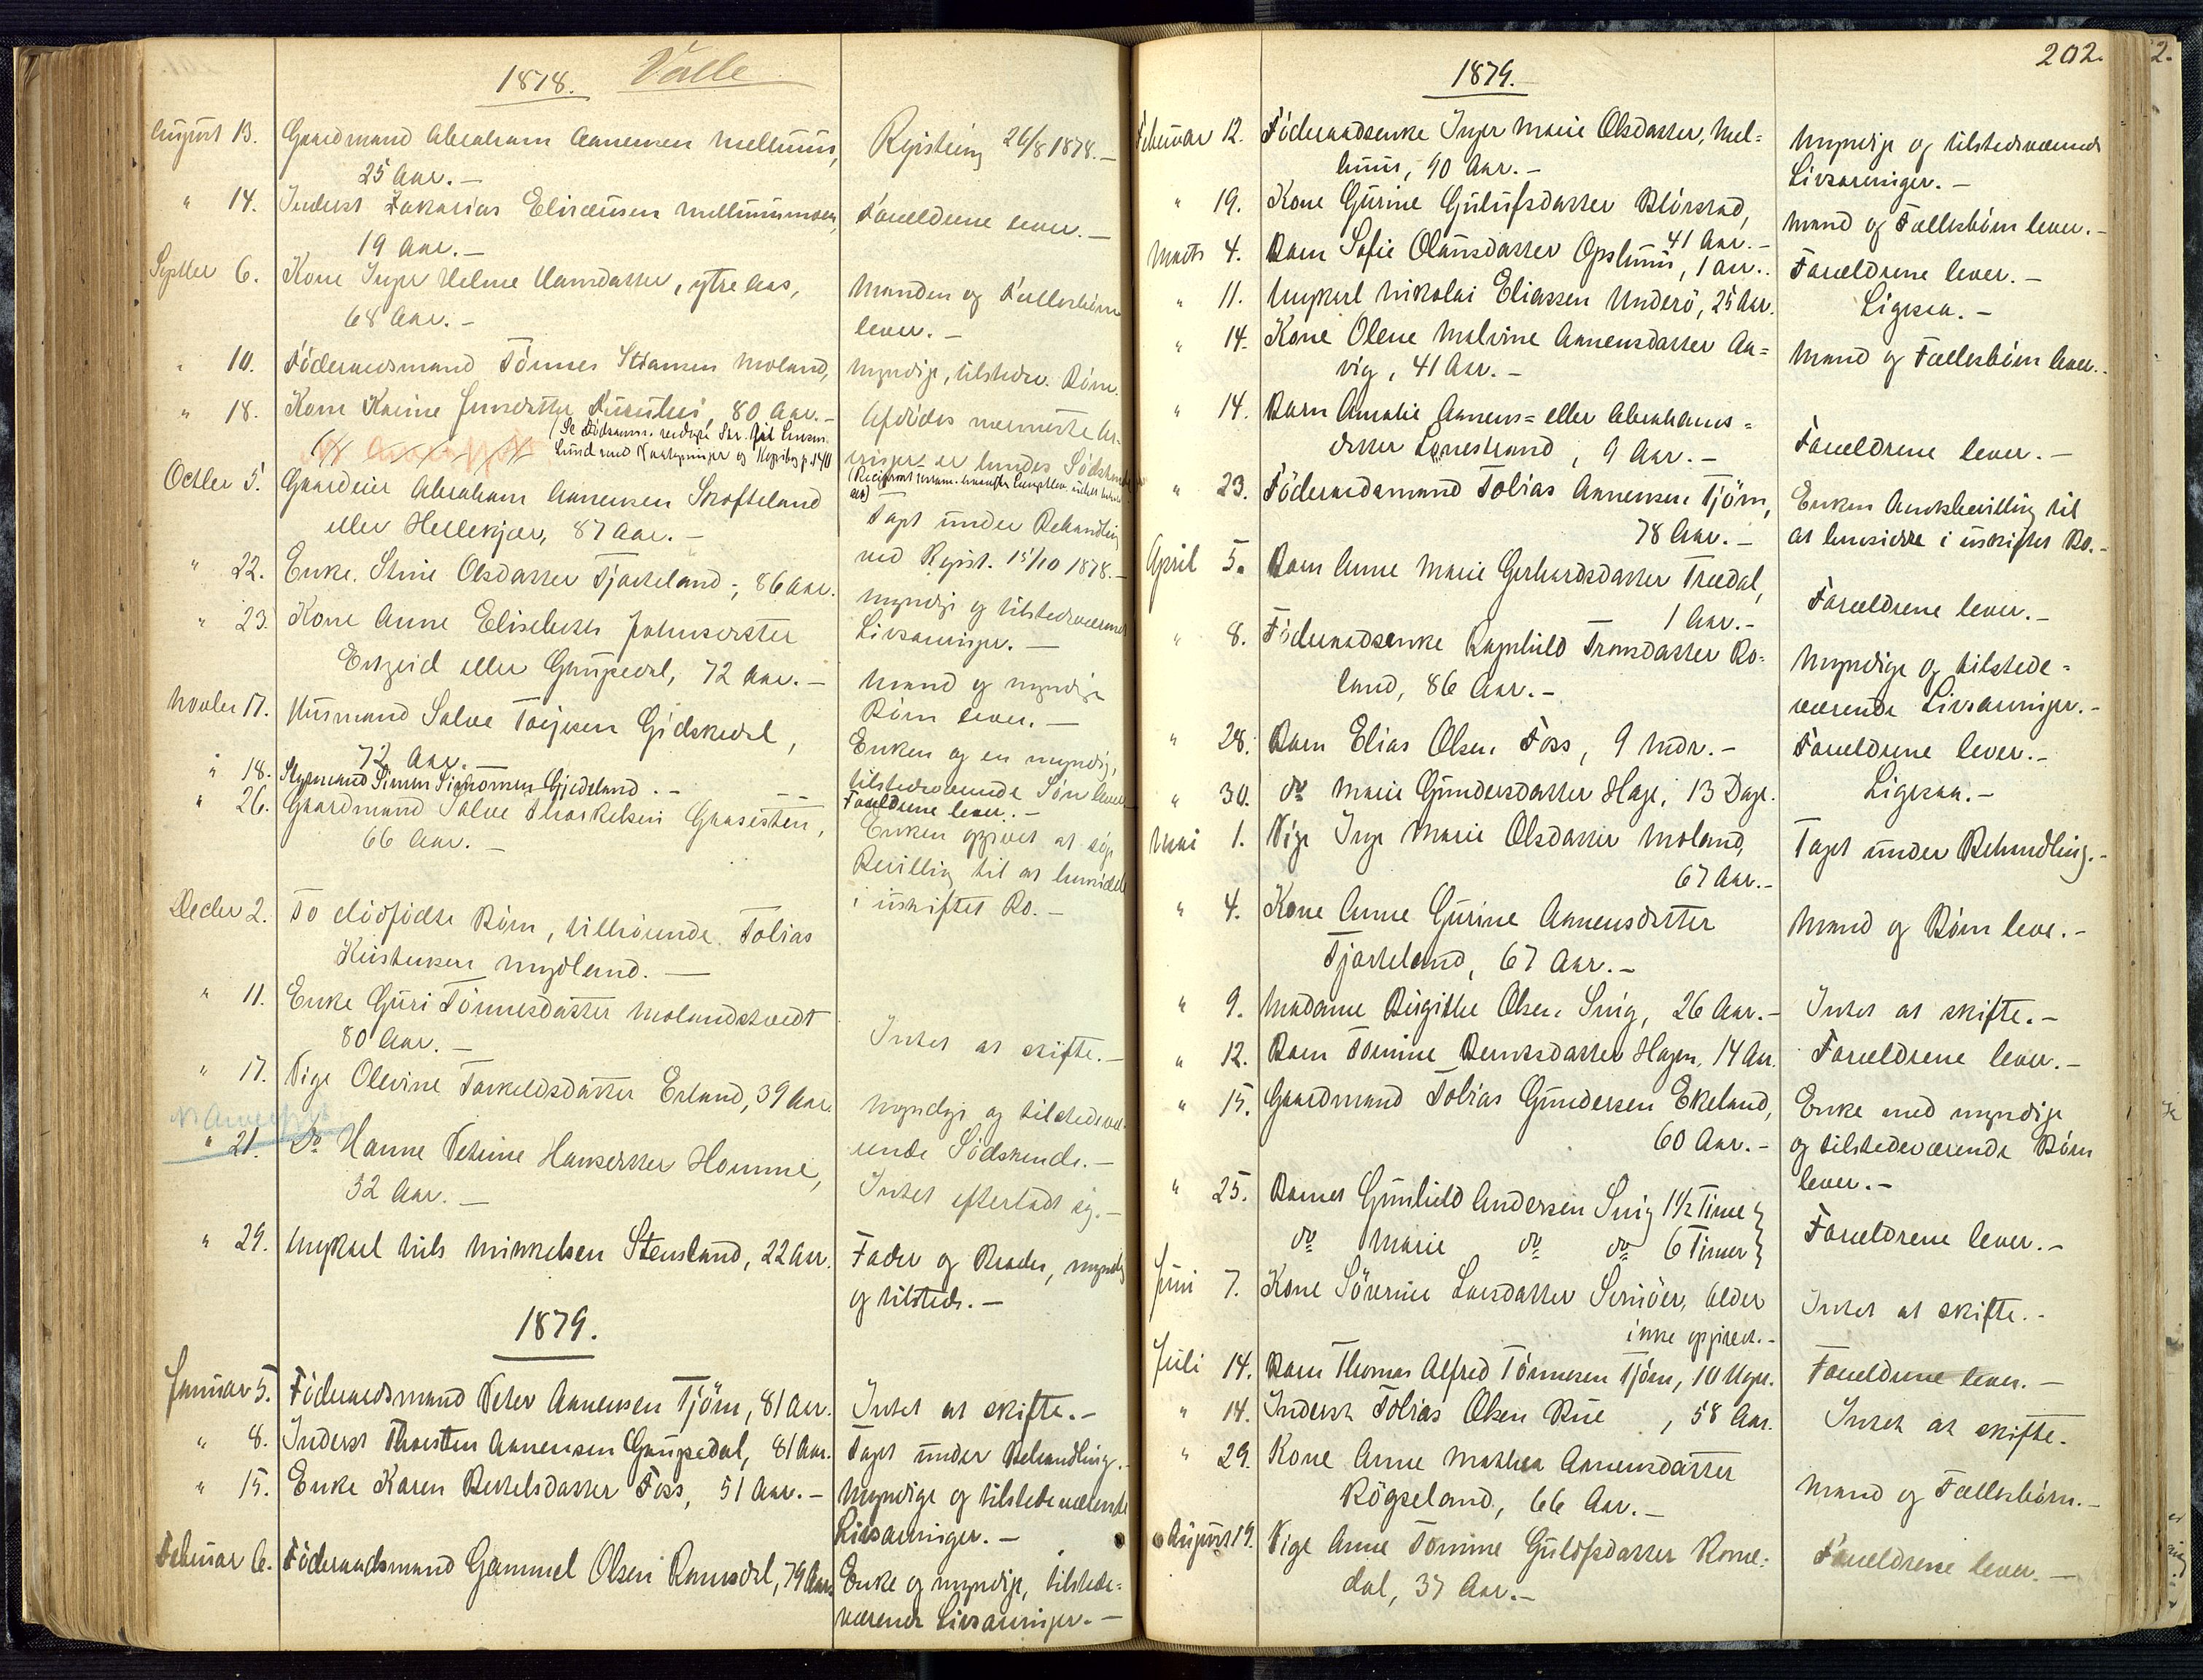 1878. Valle
August 13. Gaardmand Abraham Aanensen Melhuus, Registering 26/8 1878. –
25 Aar. –
" 14. Inderst Zakarias Elisæusen Melhuusmoen, Forældrene lever. –
19 Aar. –
Septber 6. Kone Inger Helene Hansdatter, ytre Aas, Manden og Fællesbörn
68 Aar. – lever. –
" 10. Föderaadsmand Tönnes Stiansen Moland, Myndige, tilstedev. Börn.
" 18. Kone Karine Jensdatter, 80 Aar. – Afdödes nærmeste Ar-
vinger er hendes Södskende
Octber 5. Gaardeier Abraham Aanensen Skofteland
eller Hellekjær, 87 Aar. – Taget under Behandling
ved Regist. 15/10 1878. –
" 22. Enke Stine Olsdatter Tjorteland, 86 Aar. Myndige og tilstedeværende
Livsarvinger. –
" 23. Kone Anne Elisebeth Johnsdatter Mand og myndige
Eitzeid eller Gaupedal, 72 Aar. – Börn lever. –
Novber 17. Husmand Salve Torjesen Gidskedal, Enken og en myndig,
72 Aar. – tilstedeværende Sön lever
" 18. Styrmand Simon Sigbjørnsen Gjedeland. – Forældrene lever. –
" 26. Gaardmand Salve Thorkelsen Gaasesten, Enken opgivet at söge
66 Aar. – Bevilling til at hensidde
i uskiftet Bo. –
Decber 2. To dödfödte Börn, tilhörende Tobias
Kristensen Mydland. –
" 11. Enke Guri Tönnesdatter Molandstvedt
80 Aar. – Intet at skifte. –
" 17. Pige Olevine Torkeldsdatter Erland, 39 Aar. Myndige og tilstedevæ-
rende Södskende. –
" 21. Do Hanne Petrine Hansdatter Homme,
32 Aar. – Intet efterladt sig. –
" 29. Ungkarl Nils Mikkelsen Stensland, 22 Aar. Fader og Broder, myndig
og tilstede. –
1879.
Januar 5. Föderaadsmand Peter Aanensen Tjöm, 81 Aar. Intet at skifte. –
" 8. Inderst Thorsten Aanensen Gaupedal, 81 Aar. Taget under Behandling. –
" 15. Enke Karen Bertelsdatter Foss, 51 Aar. – Myndige og tilstedeværende
Livsarvinger. –
Februar 6. Föderaadsmand Gammel Olsen Ramsdal, 79 Aar. Enke og myndige, tilstede-
værende Livsarvinger. –
202.
1879.
Februar 12. Föderaadsenke Inger Marie Olsdatter, Mel= Myndige og tilstedeværende
huus, 90 Aar. – Livsarvinger. –
" 19. Kone Gurine Gulufsdatter Blörstad, Mand og Fællesbörn lever. –
41 Aar. –
Marts 4. Barn Sofie Olausdatter Opshuus, 1 Aar. Forældrene lever. –
" 11. Ungkarl Nikolai Eliassen Underö, 25 Aar. Ligesaa. –
" 14. Kone Olene Malvine Aanensdatter Aa=
vig, 41 Aar. – Mand og Fællesbörn lever. –
" 14. Barn Amalie Aanens= eller Abrahams=
datter Lonestrand, 9 Aar. – Forældrene lever. –
" 23. Föderaadsmand Tobias Aanensen Tjöm, Enken Amtsbevilling til
78 Aar. – at hensidde i uskiftet Bo. –
April 5. Barn Anne Marie Gerhardsdatter Tredal,
1 Aar. – Forældrene lever. –
" 8. Föderaadsenke Ragnhild Tronsdatter Ro- Myndige og tilstede=
land, 86 Aar. – værende Livsarvinger. –
" 28. Barn Elias Olsen Foss, 9 Mdr. – Forældrene lever. –
" 30. do Marie Gundersdatter Hage, 13 Dage. Ligesaa. –
Mai 1. Pige Inger Marie Olsdatter Moland, Taget under Behandling. –
67 Aar. –
" 4. Kone Anne Gurine Aanensdatter Mand og Börn leve. –
Tjorteland, 67 Aar. –
" 9. Madame Birgitte Olsen Snig, 26 Aar. – Intet at skifte. –
" 12. Barn Tomine Berntsdatter Hagen, 14 Aar. Forældrene lever. –
" 15. Gaardmand Tobias Gundersen Ekeland, Enke med myndige
60 Aar. – og tilstedeværende Börn
lever. –
" 25. Barnet Gunhild Andersen Snig 1½ Time }
do Marie do do 6 Timer } Forældrene lever. –
Juni 7. Kone Sörine Larsdatter Svinöer, Alder Intet at skifte. –
ikke opgivet. –
Juli 14. Barn Thomas Alfred Tönnesen Tjöm, 10 Uger. Forældrene lever. –
" 14. Inderst Tobias Olsen Rue, 58 Aar. Intet at skifte.
" 29. Kone Anne Mathea Aanensdatter
Rögseland, 66 Aar. – Mand og Fællesbörn. –
August 19. Pige Anne Tomine Gulofsdatter Rome-
dal, 37 Aar. – Forældrene lever. –